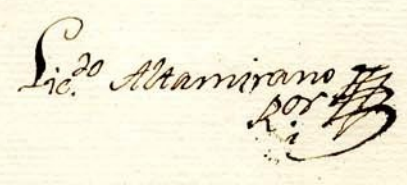 Lic.do Altamirano
Ror.i